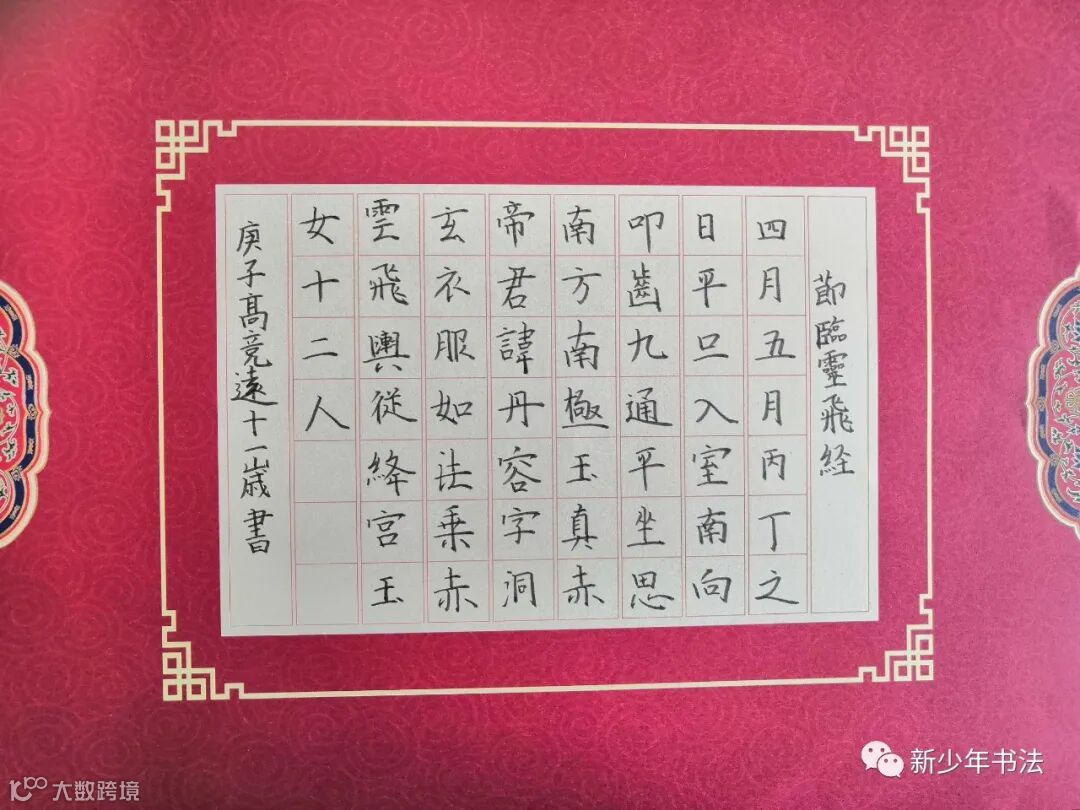 節臨靈飛経
四月五月丙丁之
日平旦入室南向
叩齒九通平坐思
南方南極玉真赤
帝君諱丹容字洞
玄衣服如法乗赤
雲飛輿従絳宮玉
女十二人
庚子高竞遠十一歳書
新少年书法
大数跨境